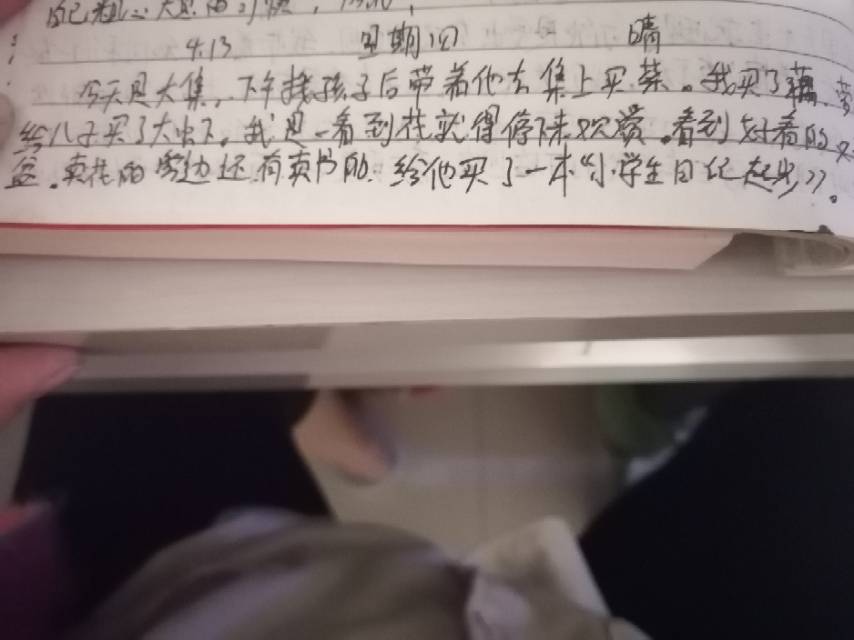 自己粗心大意的习惯,
4.13 星期四 晴
今天是大集,下午接孩子后带着他去集上买菜。我买了藕,
给儿子买了大虾。我是一看到花就得停下来欢赏。看到好看的又
盆。卖花的旁边还有卖书的.给他买了一本“小学生日记起步》。